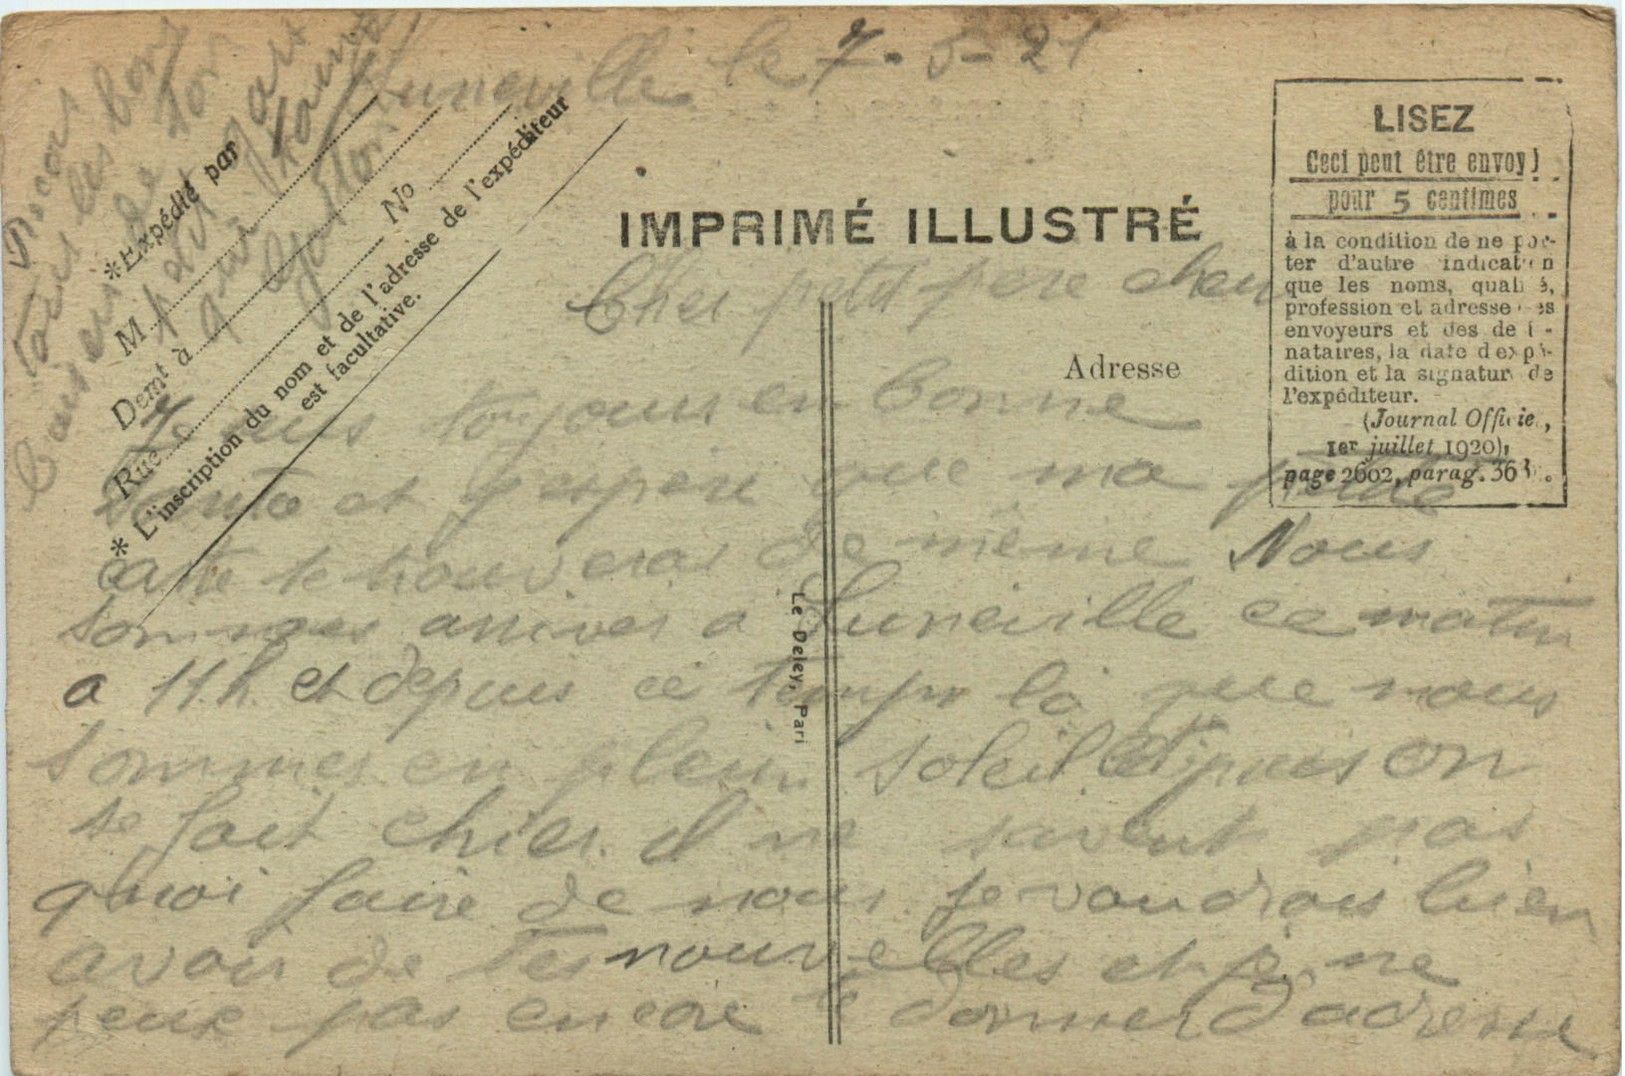 Luneville le 7-5-21
LISEZ
Ceci peut être envoyé
pour 5 centimes
à la condition de ne por-
ter d'autre indication
que les noms, qualités,
profession et adresse des
envoyeurs et des desti-
nataires, la date d'expé-
dition et la signature de
l'expéditeur.
(Journal Officiel,
1er juillet 1920),
page 2602, parag. 363.
IMPRIMÉ ILLUSTRÉ
*Expédié par
M
Demt à
Rue
No
* L'inscription du nom et de l'adresse de l'expéditeur
est facultative.
Adresse
Le Deley, Pari
Cher petit pere cheri
Je suis toujours en bonne
santé et j'espère que ma petite
carte te trouveras de même Nous
sommes arriver a Luneville ce matin
a 11.h. et depuis ce temps là que nous
sommes en plein soleil et puis on
se fait chier il ne savent pas
quoi faire de nous je voudrais bien
avoir de tes nouvelles et je ne
peux pas encore te donner d'adresse
Recois
tous les bons
baisers de ton
petit gars
qui t'aime
Gaston